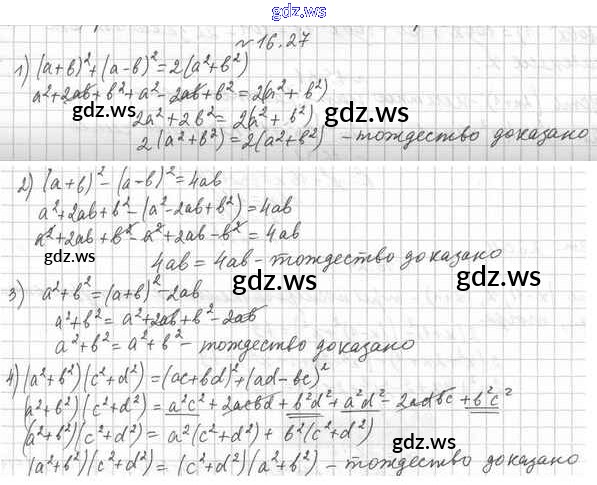 gdz.ws
№ 16.27
1) (a+b)²+(a-b)²=2(a²+b²)
a²+2ab+b²+a²-2ab+b²=2(a²+b²)
gdz.ws gdz.ws
2a²+2b²=2(a²+b²)
2(a²+b²)=2(a²+b²) - тождество доказано
2) (a+b)²-(a-b)²=4ab
a²+2ab+b²-(a²-2ab+b²)=4ab
a²+2ab+b²-a²+2ab-b²=4ab
gdz.ws
4ab=4ab-тождество доказано
gdz.ws gdz.ws
3) a²+b²=(a+b)²-2ab
a²+b²=a²+2ab+b²-2ab
a²+b²=a²+b²- тождество доказано
4) (a²+b²)(c²+d²)=(ac+bd)²+(ad-bc)²
(a²+b²)(c²+d²)=a²c²+2acbd+b²d²+a²d²-2adbc+b²c²
(a²+b²)(c²+d²)=a²(c²+d²)+b²(c²+d²)
gdz.ws gdz.ws
(a²+b²)(c²+d²)=(c²+d²)(a²+b²)- тождество доказано